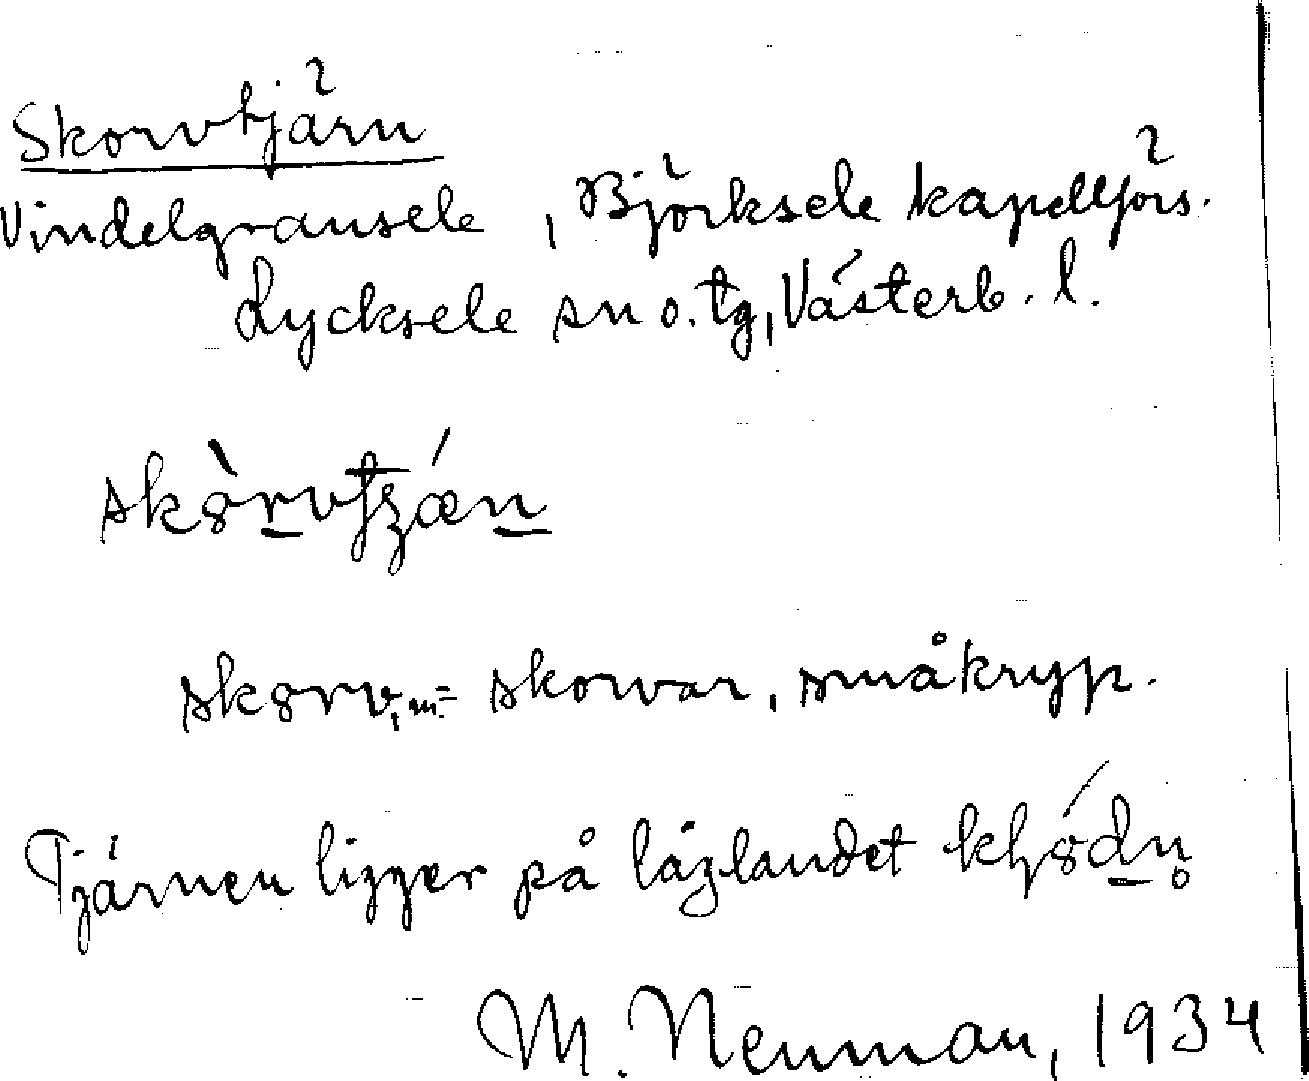 Skorvtjärn
Vindelgransele, Björksele kapellförs.
Lycksele sn o. tg, Västerb. l.
skorv, m = skorvar, småkryp.
Tjärnen ligger på låglandet
M. Neuman, 1934